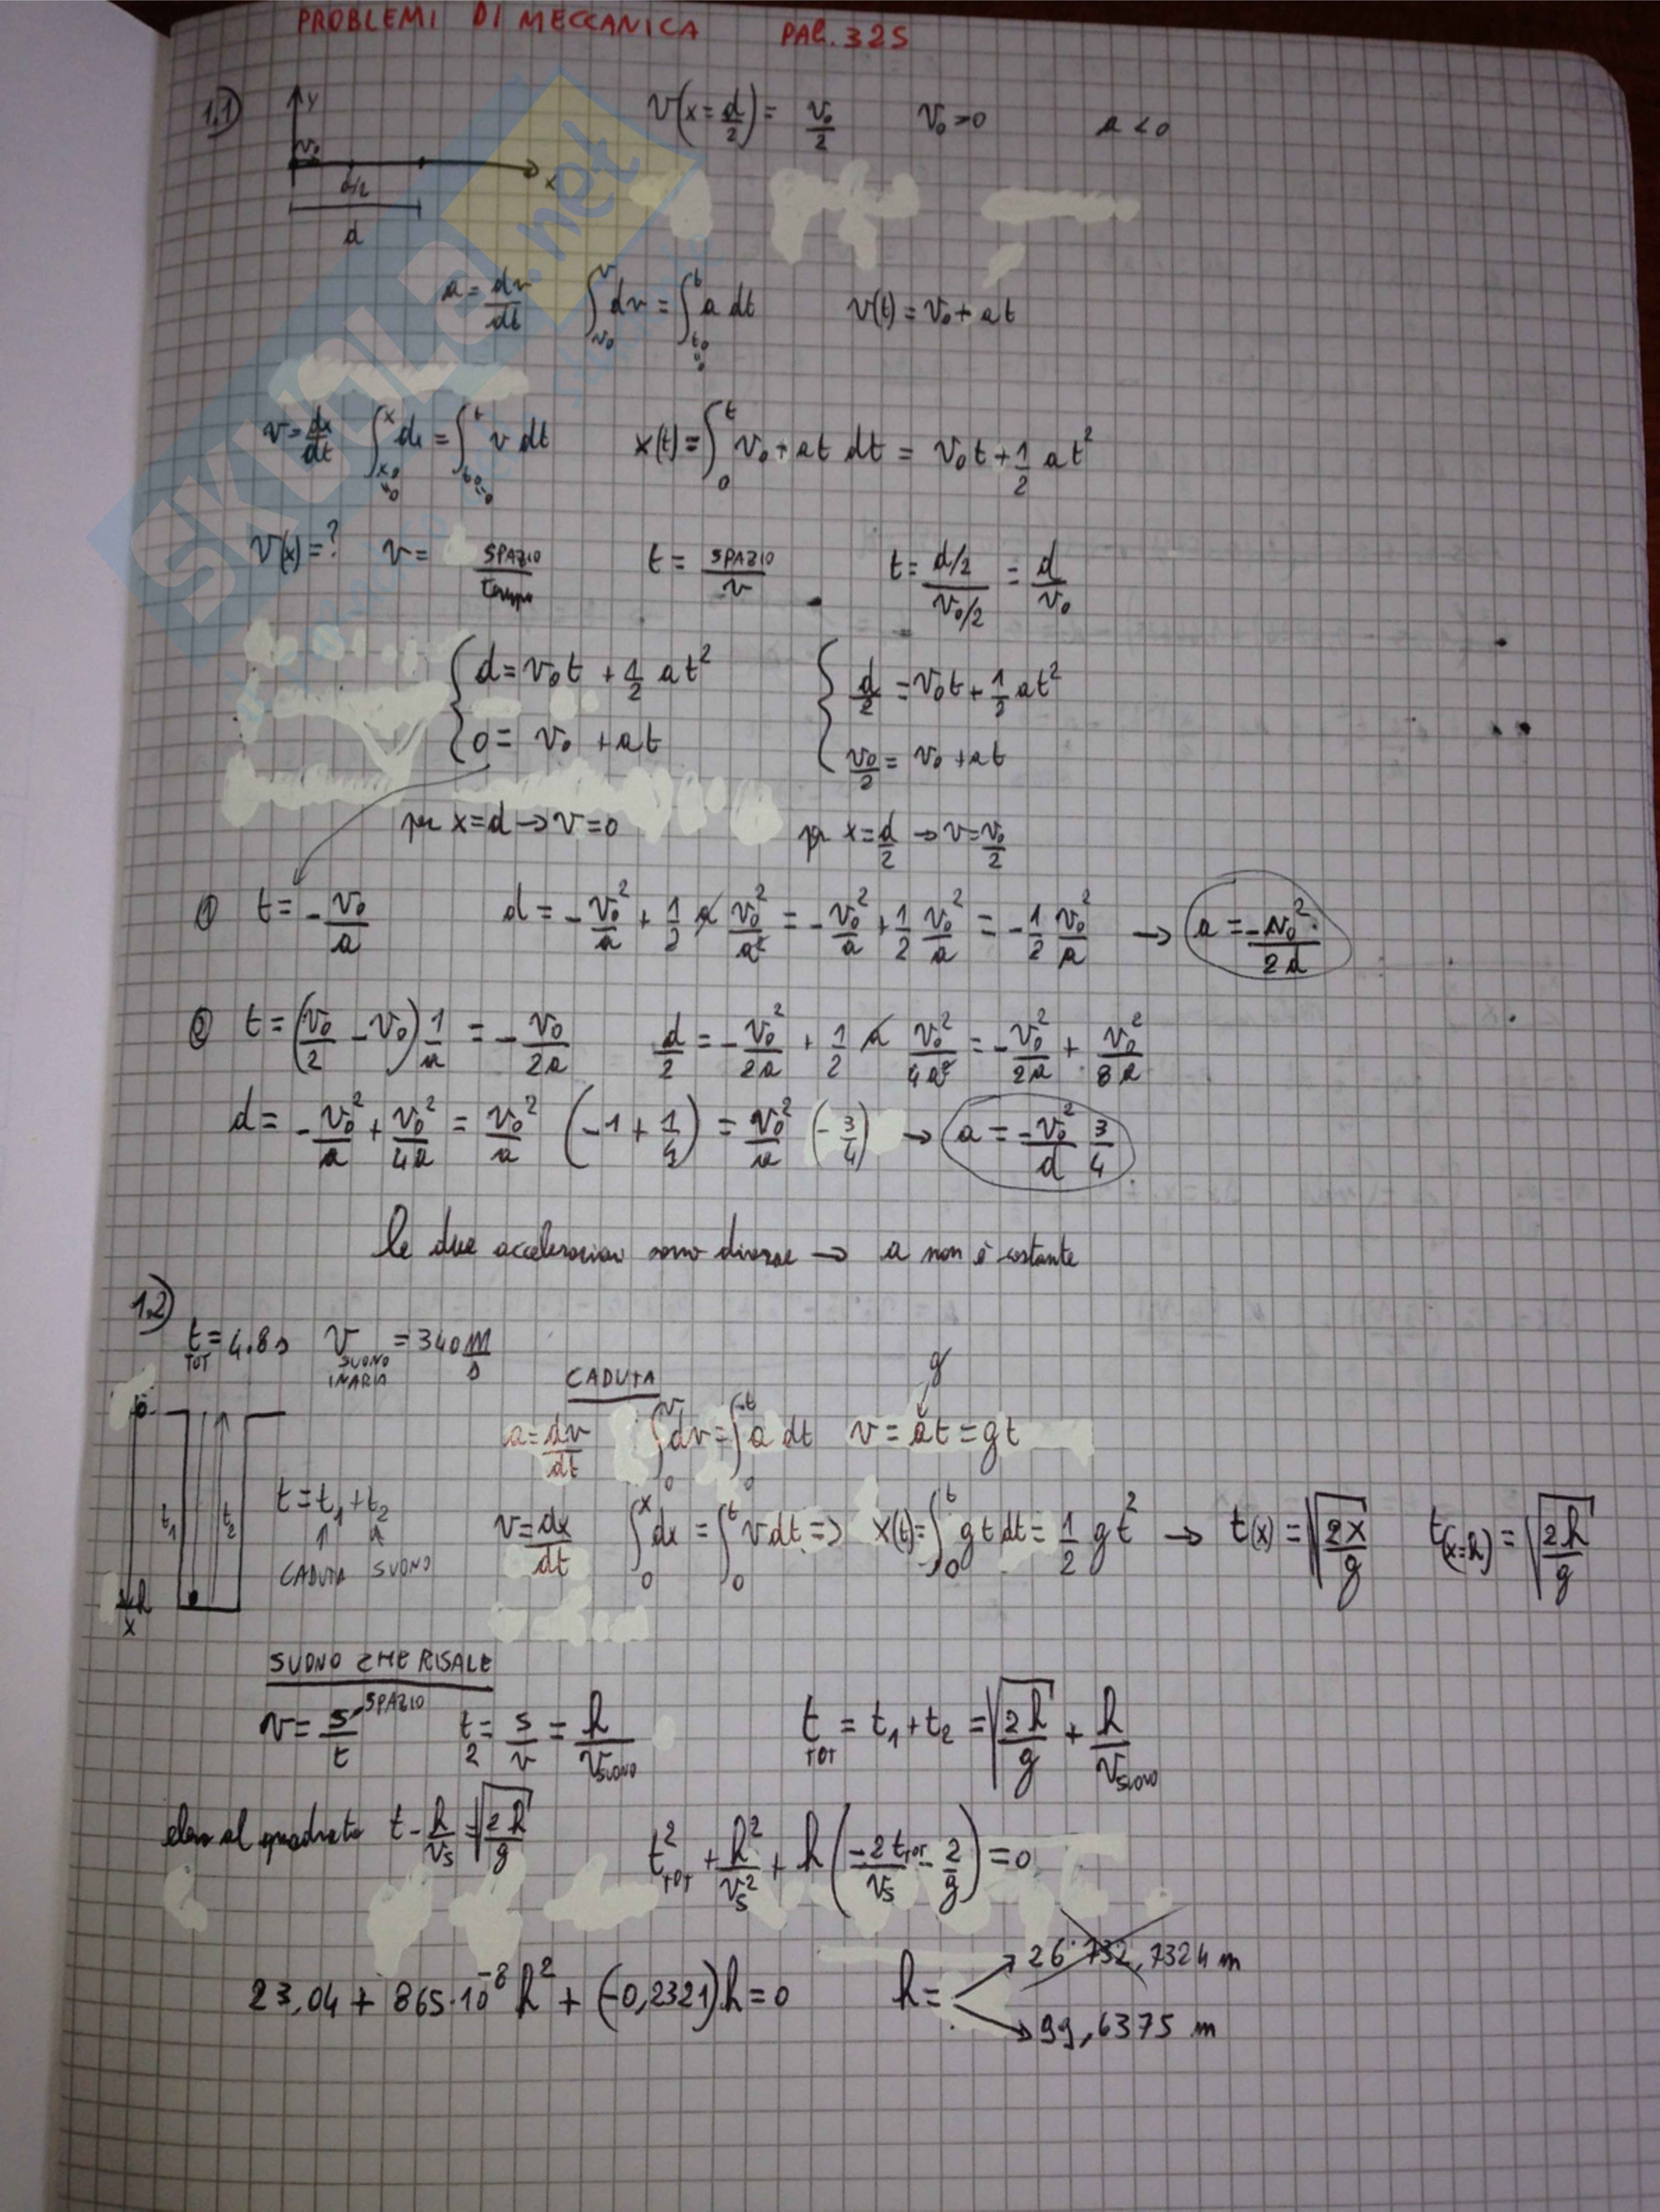 PROBLEMI DI MECCANICA PAG. 325
1.1) y v₀ d/2 x d
v(x=d/2) = v₀/2 v₀>0 a<0
a = dv/dt ∫_{v₀}^{v} dv = ∫_{t₀=0}^{t} a dt v(t) = v₀ + at
v = dx/dt ∫_{x₀=0}^{x} dx = ∫_{t₀=0}^{t} v dt x(t) = ∫_0^t v₀ + at dt = v₀t + 1/2 at²
v(x)=? v = SPAZIO/tempo t = SPAZIO/v t = (d/2)/(v₀/2) = d/v₀
{ d = v₀t + 1/2 at² { d/2 = v₀t + 1/2 at²
{ 0 = v₀ + at { v₀/2 = v₀ + at
per x=d → v=0 per x=d/2 → v=v₀/2
① t = -v₀/a d = -v₀²/a + 1/2 a v₀²/a² = -v₀²/a + 1/2 v₀²/a = -1/2 v₀²/a → a = -v₀²/2d
② t = (v₀/2 - v₀) 1/a = -v₀/2a d/2 = -v₀²/2a + 1/2 a v₀²/4a² = -v₀²/2a + v₀²/8a
d = -v₀²/a + v₀²/4a = v₀²/a (-1 + 1/4) = v₀²/a (-3/4) → a = -v₀²/d 3/4
le due accelerazioni sono diverse → a non è costante
1.2)
t_TOT = 4.8 s v_SUONO IN ARIA = 340 m/s
CADUTA
a = dv/dt ∫_0^v dv = ∫_0^t a dt v = at = gt g
0 t₁ t₂ h x
t = t₁ + t₂
CADUTA SUONO
v = dx/dt ∫_0^x dx = ∫_0^t v dt => x(t) = ∫_0^t gt dt = 1/2 gt² → t(x) = √(2x/g) t(x=h) = √(2h/g)
SUONO CHE RISALE
v = s/t SPAZIO t₂ = s/v = h/v_SUONO t_TOT = t₁ + t₂ = √(2h/g) + h/v_SUONO
elevo al quadrato t - h/v_s = √(2h/g) t²_TOT + h²/v_s² + h(-2t_TOT/v_s - 2/g) = 0
23,04 + 865·10⁻⁸ h² + (-0,2321)h = 0 h = 26·732,7324 m
99,6375 m
SKUOLA.net